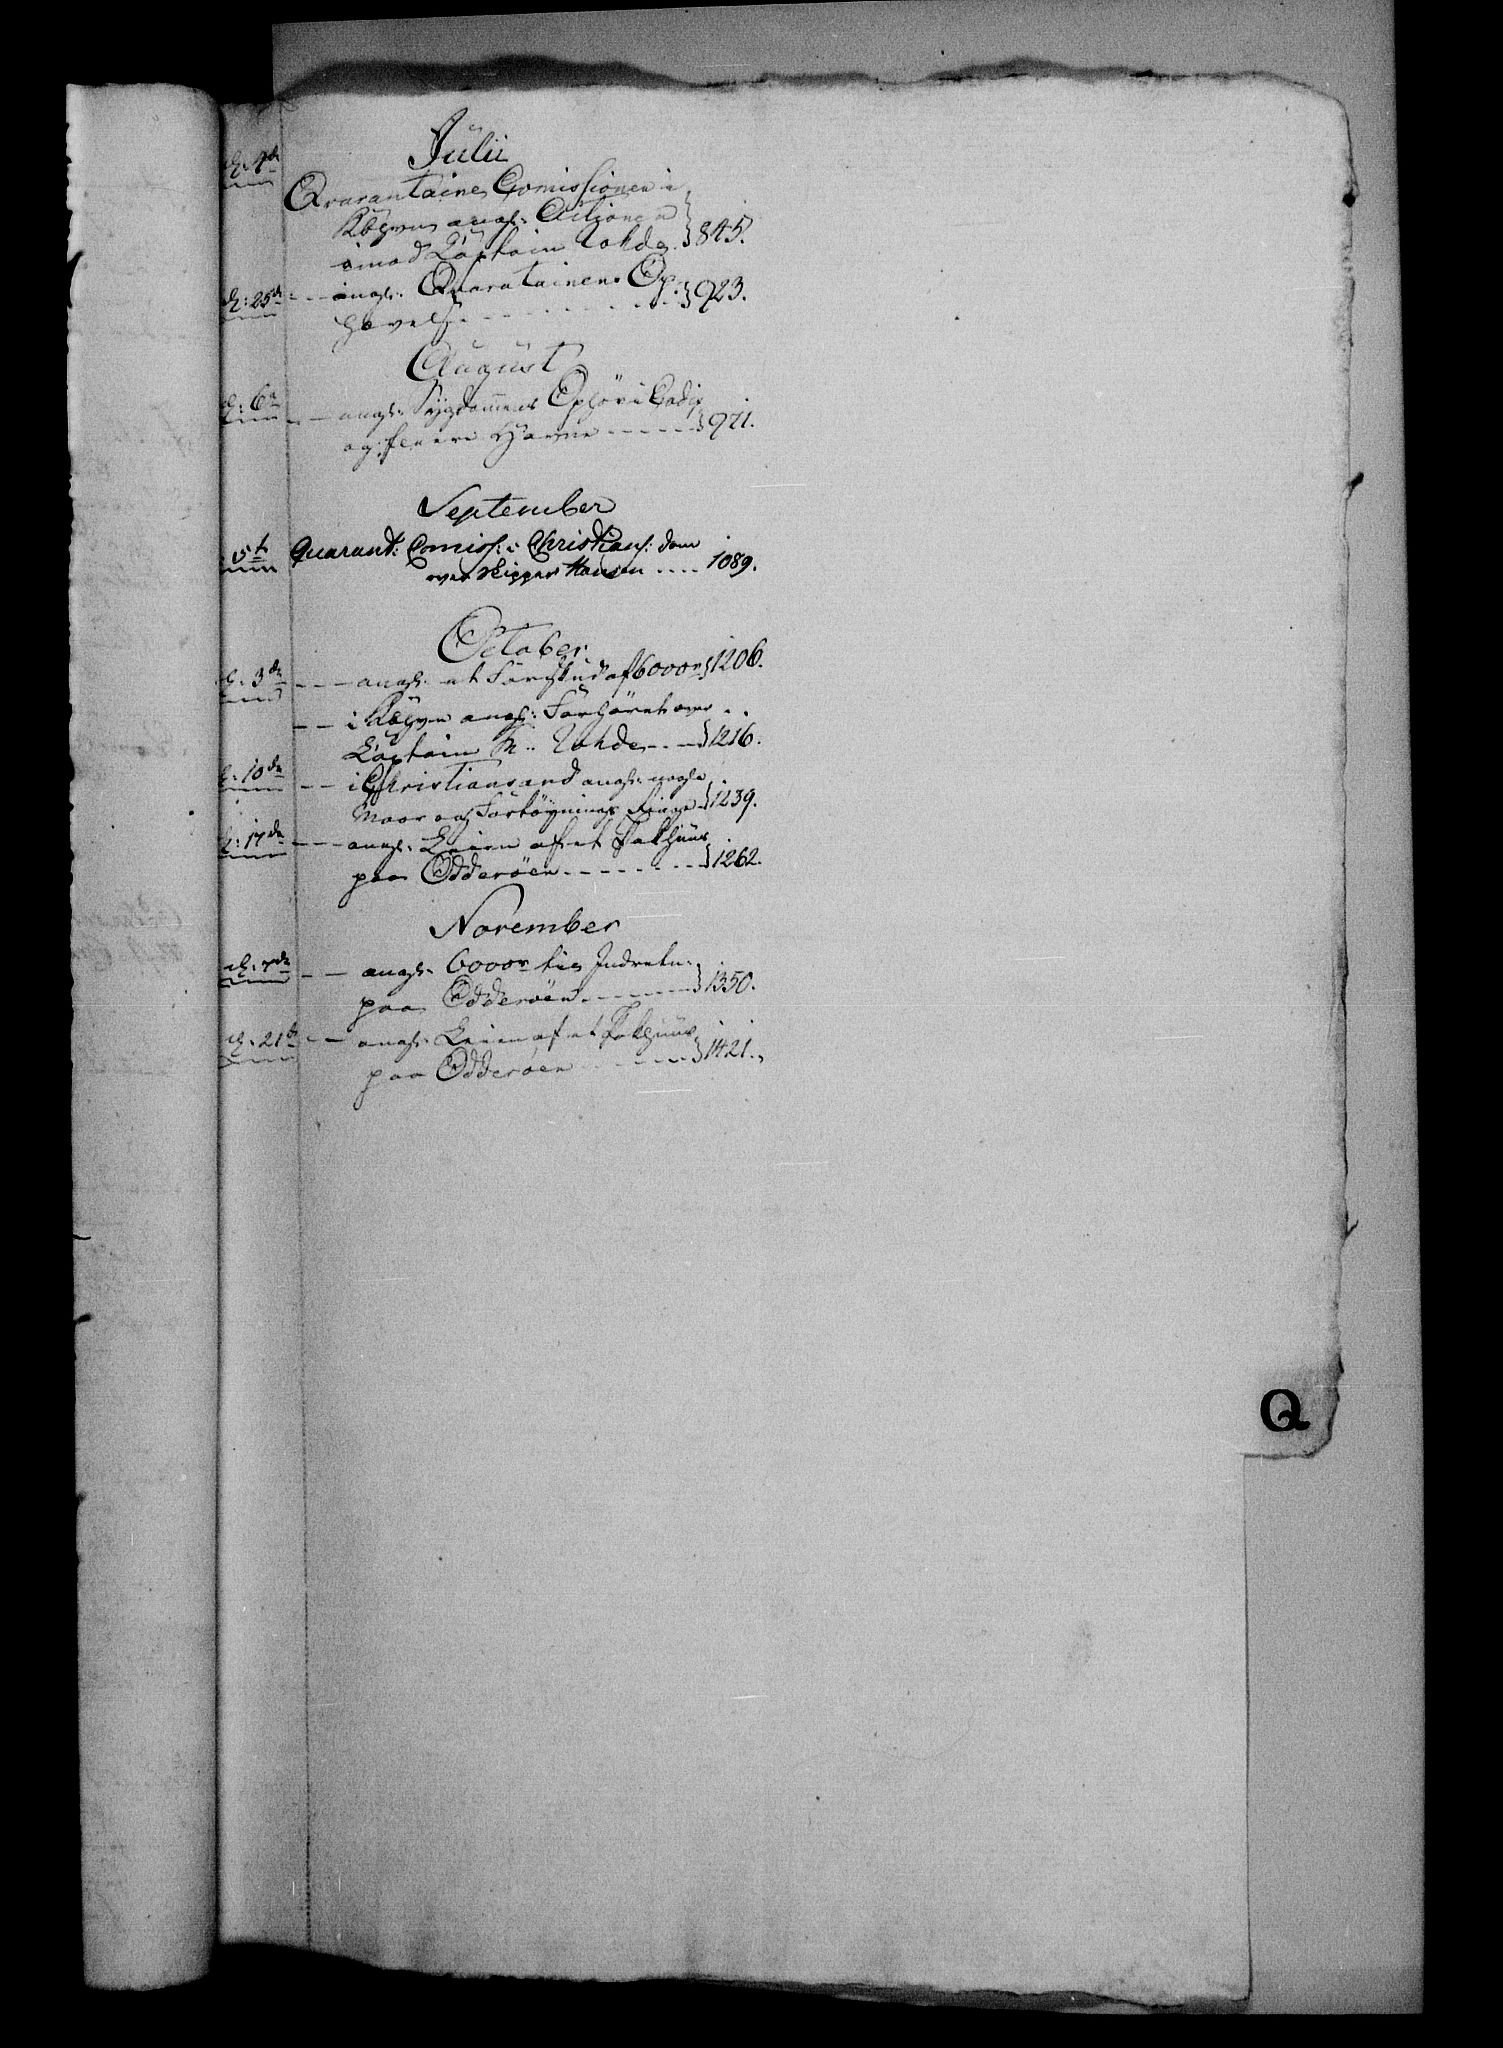 Julii
d: 4de
Qvarantaine Comissionen i
Kbhvn angl: Actionen
imod Captain Rohde 845.
d: 25de - - angl: Qvarantainens Op-
hævelse 923.
August
d: 6te - - angl: Sygdommens Ophör i Cadix
og flere Havne 971.
September
5te Quarant: Comiss: i Christians: dom
over skipper Hansen .... 1089.
October
d: 3de - - angl: et Forskud af 6000r 1206.
- - i Kbhvn angl: Forhöret over
Captain M: Rohde 1216.
d: 10de - - i Christiansand angl: nogle
Moor og Fortöynings Ringe 1239.
d: 17de - - angl: Leien af et Pakhuus
paa Odderöen 1262.
November
d: 7de - - angl: 6000r til Indretn:
paa Odderöen 1350.
d: 21de - - angl: Leien af et Pakhuus
paa Odderöen 1421.
Q